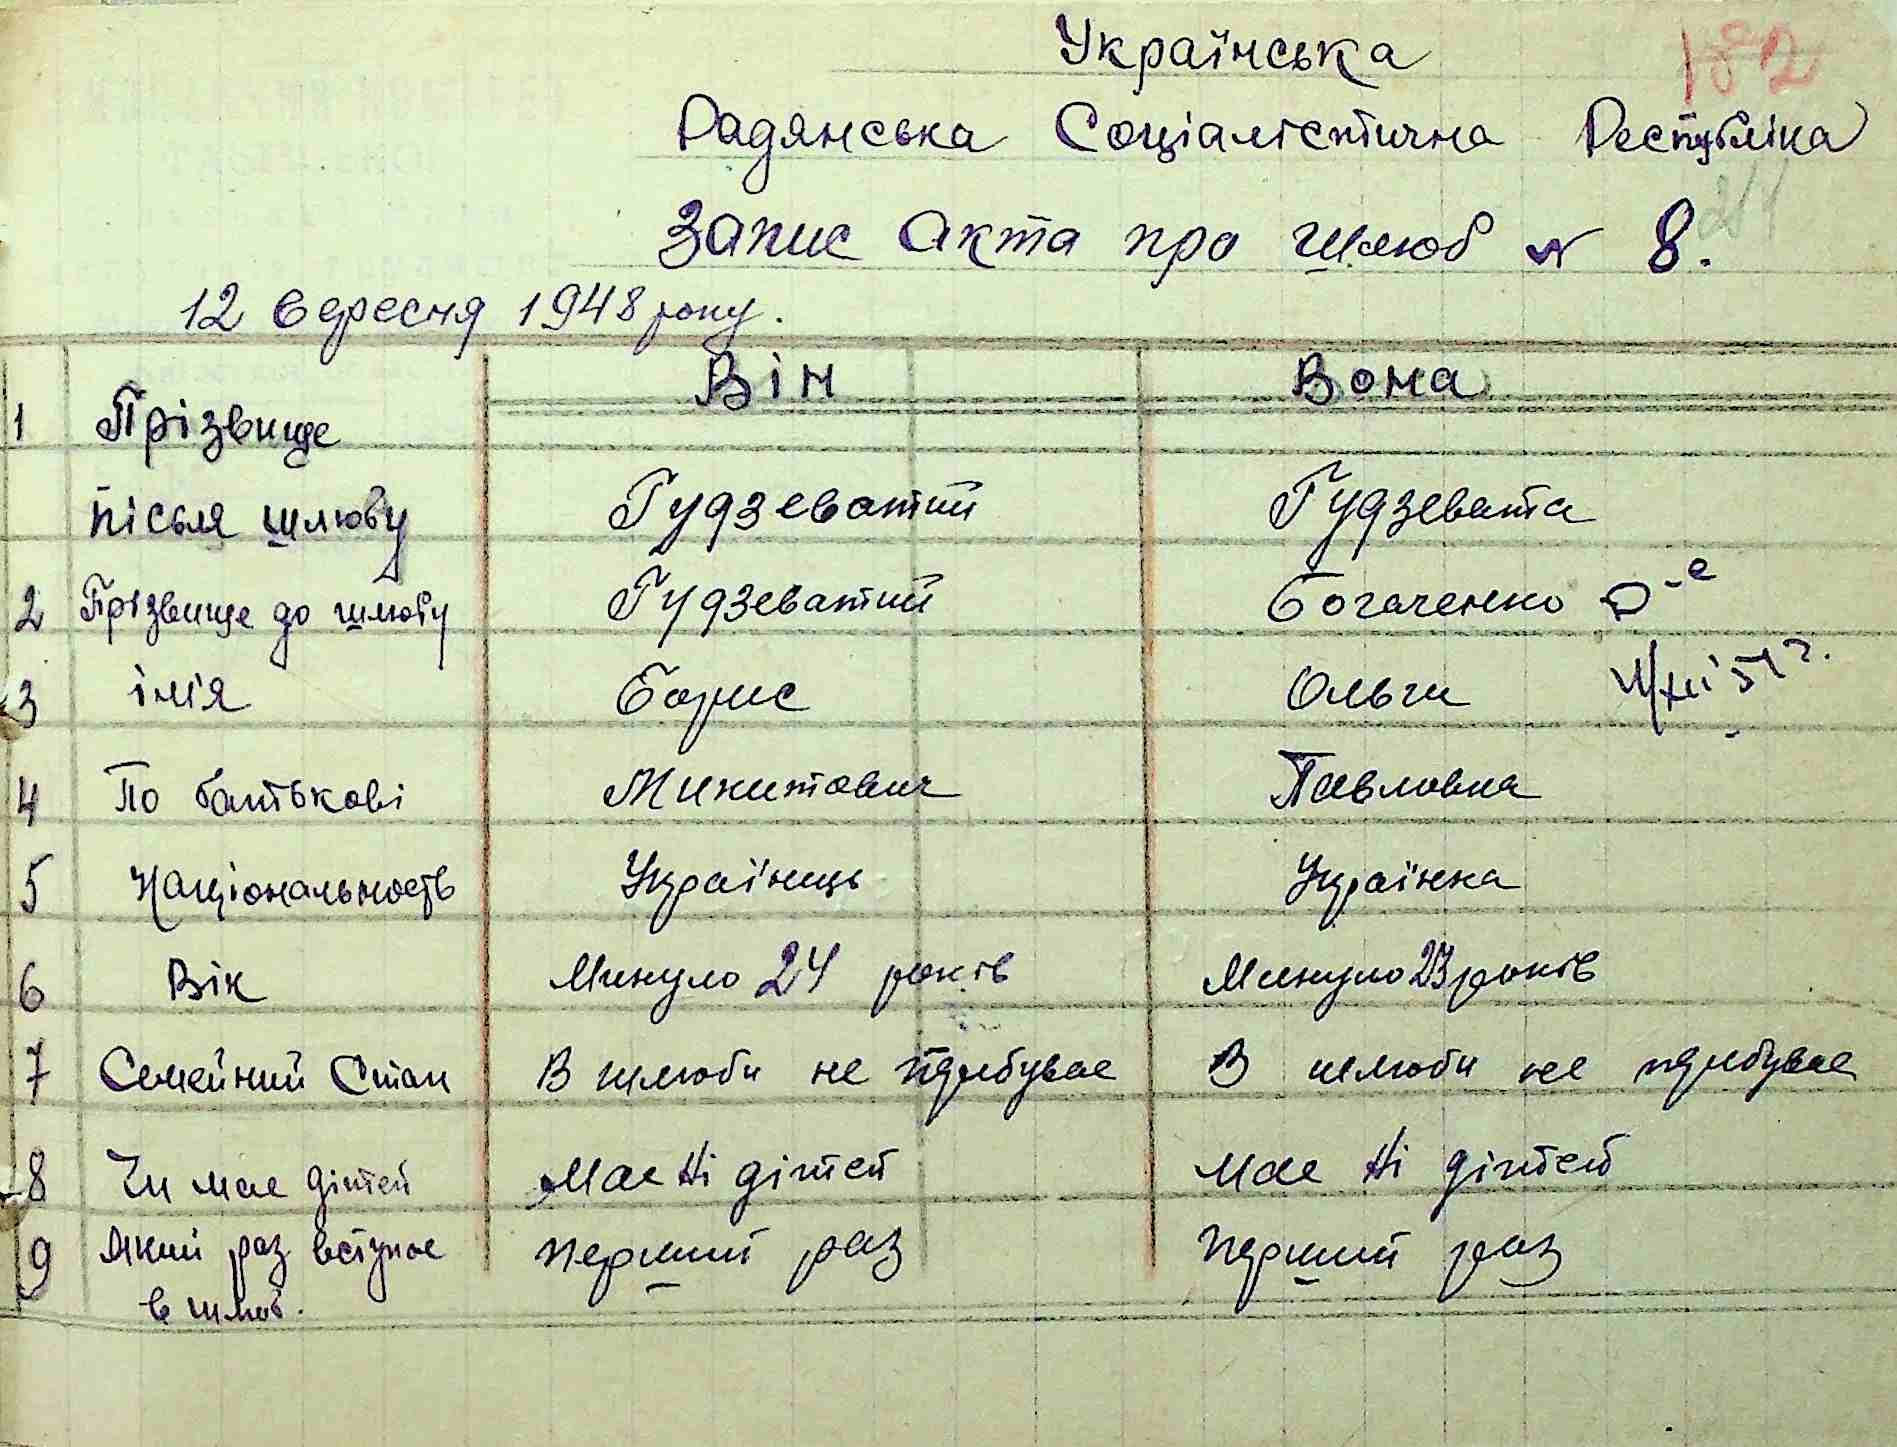 Українська
182
Радянська Соціалістична Республіка
Запис Акта про шлюб № 8.
12 вересня 1948 року.
Він Вона
1 Прізвище
після шлюбу Гудзеватий Гудзевата
2 Прізвище до шлюбу Гудзеватий Богаченко
3 імія Борис Ольги
4 По батькові Микитович Павловна
5 Національность Українць Українка
6 Вік Минуло 24 років Минуло 23 років
7 Семейний Стан В шлюби не прибувае В шлюби не прибувае
8 Чи мае дітей Мае Ні дітей Мае Ні дітей
9 Який раз вступае перший раз перший раз
в шлюб.